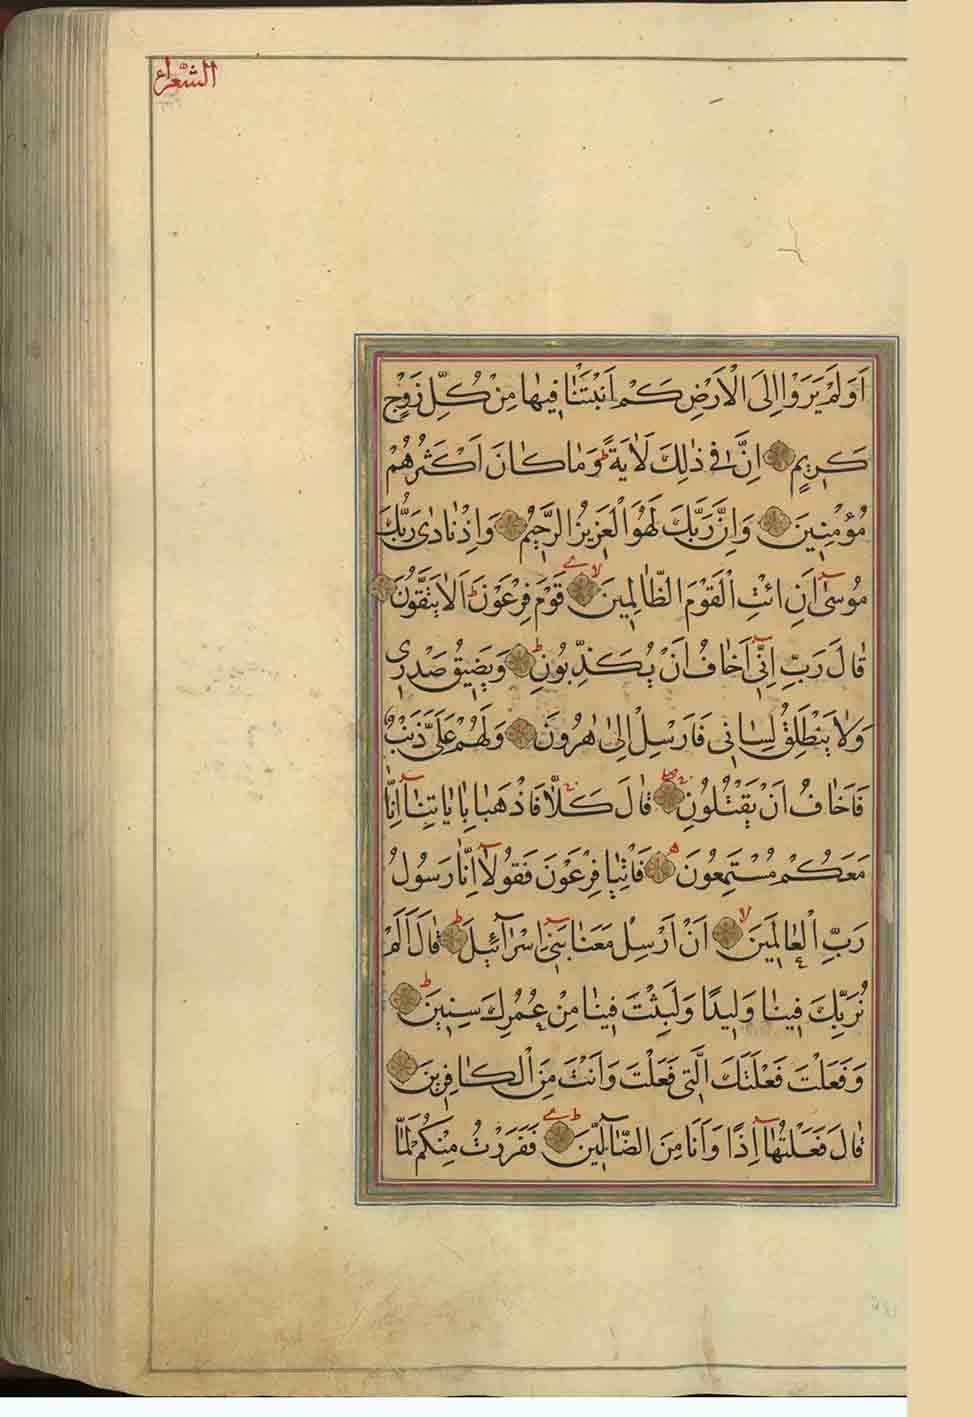 الشعراء
اَوَلَمْ يَرَوْا اِلَى الْاَرْضِ كَمْ اَنْبَتْنَا فِيهَا مِنْ كُلِّ زَوْجٍ
كَرِيمٍ اِنَّ فِى ذٰلِكَ لَاٰيَةً ط وَمَا كَانَ اَكْثَرُهُمْ
مُؤْمِنِينَ وَاِنَّ رَبَّكَ لَهُوَ الْعَزِيزُ الرَّحِيمُ وَاِذْ نَادٰى رَبُّكَ
مُوسٰٓى اَنِ ائْتِ الْقَوْمَ الظَّالِمِينَ لا قَوْمَ فِرْعَوْنَ ط اَلَا يَتَّقُونَ
قَالَ رَبِّ اِنِّىٓ اَخَافُ اَنْ يُكَذِّبُونِ ط وَيَضِيقُ صَدْرِى
وَلَا يَنْطَلِقُ لِسَانِى فَاَرْسِلْ اِلٰى هٰرُونَ وَلَهُمْ عَلَىَّ ذَنْبٌ
فَاَخَافُ اَنْ يَقْتُلُونِ قَالَ كَلَّا فَاذْهَبَا بِاٰيَاتِنَآ اِنَّا
مَعَكُمْ مُسْتَمِعُونَ فَاْتِيَا فِرْعَوْنَ فَقُولَآ اِنَّا رَسُولُ
رَبِّ الْعَالَمِينَ لا اَنْ اَرْسِلْ مَعَنَا بَنِىٓ اِسْرَآئِيلَ ط قَالَ اَلَمْ
نُرَبِّكَ فِينَا وَلِيدًا وَلَبِثْتَ فِينَا مِنْ عُمُرِكَ سِنِينَ ط
وَفَعَلْتَ فَعْلَتَكَ الَّتِى فَعَلْتَ وَاَنْتَ مِنَ الْكَافِرِينَ
قَالَ فَعَلْتُهَآ اِذًا وَاَنَا مِنَ الضَّآلِّينَ ط فَفَرَرْتُ مِنْكُمْ لَمَّا